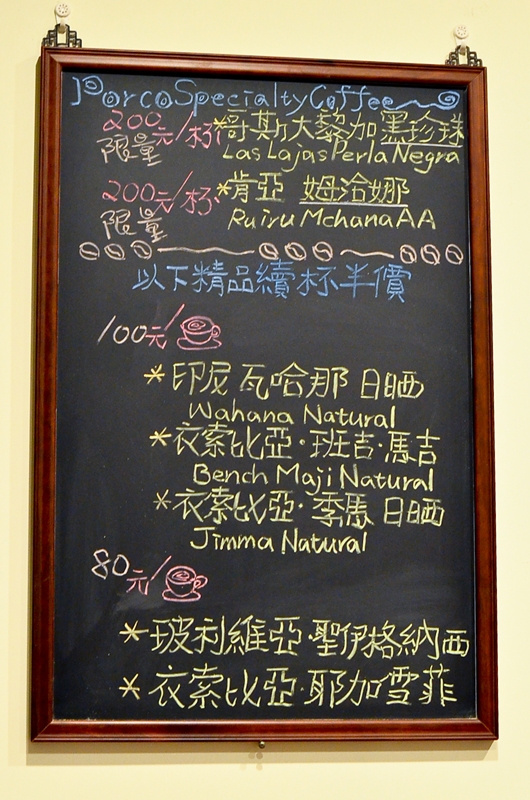 Porco Specialty Coffee
200元/杯 *哥斯大黎加 黑珍珠
限量 Las Lajas Perla Negra
200元/杯 *肯亞 姆洽娜
限量 Ruiru Mchana AA
以下精品續杯半價
100元/
*印尼 瓦哈那 日晒
Wahana Natural
*衣索比亞·班吉·馬吉
Bench Maji Natural
*衣索比亞·季馬 日晒
Jimma Natural
80元/
*玻利維亞·聖伊格納西
*衣索比亞·耶加雪菲